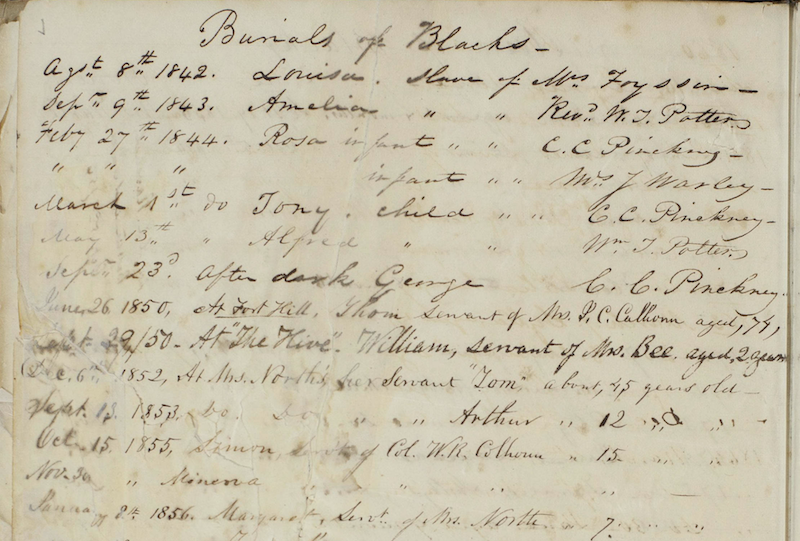 Burials of Blacks -
Agst. 8th 1842. Louisa. slave of Mrs Foyssin -
Sept. 9th 1843. Amelia " " Revd. W. T. Potter.
Feby 27th 1844. Rosa infant " " C. C Pinckney -
" " " infant " " Mrs J Warley -
March 1st do Tony. child " " C. C. Pinckney -
May 13th " Alfred " " Wm. T. Potter.
Sept. 23d. After dark George C. C. Pinckney.
June 26 1850, At Fort Hill. Thom servant of Mrs. J. C. Calhoun aged, 74,
Sept. 29/50. At "The Hive". William, servant of Mrs. Bee. aged, 2 years
Dec. 6th 1852, At Mrs. North's her Servant "Tom", about, 45 years old -
Sept. 13. 1853, Do Do " " Arthur " 12 " " -
Oct. 15. 1855, Simon, servt. of Col. W. R. Calhoun " 15. " "
Nov. 30 " Minerva " " " " -
January 1856. Margaret, Servt. of Mrs. North " 7. " "